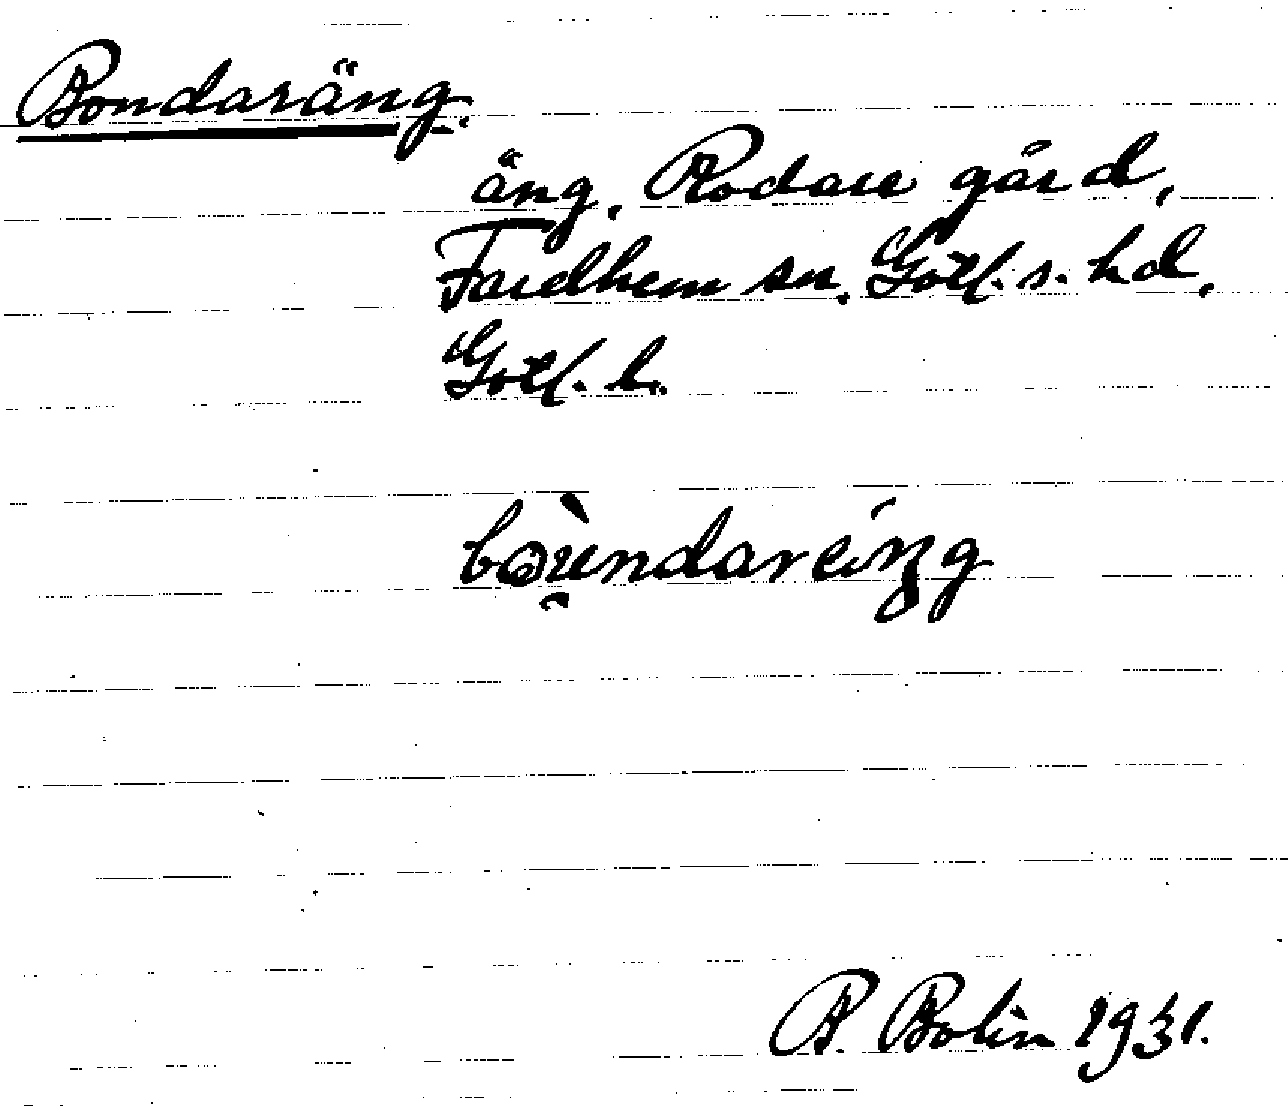 Bondaräng.
äng, Rodare gård,
Fardhem sn. Gotl. s. hd,
Gotl. l.
bòu̯ndareiŋg
B. Bolin 1931.